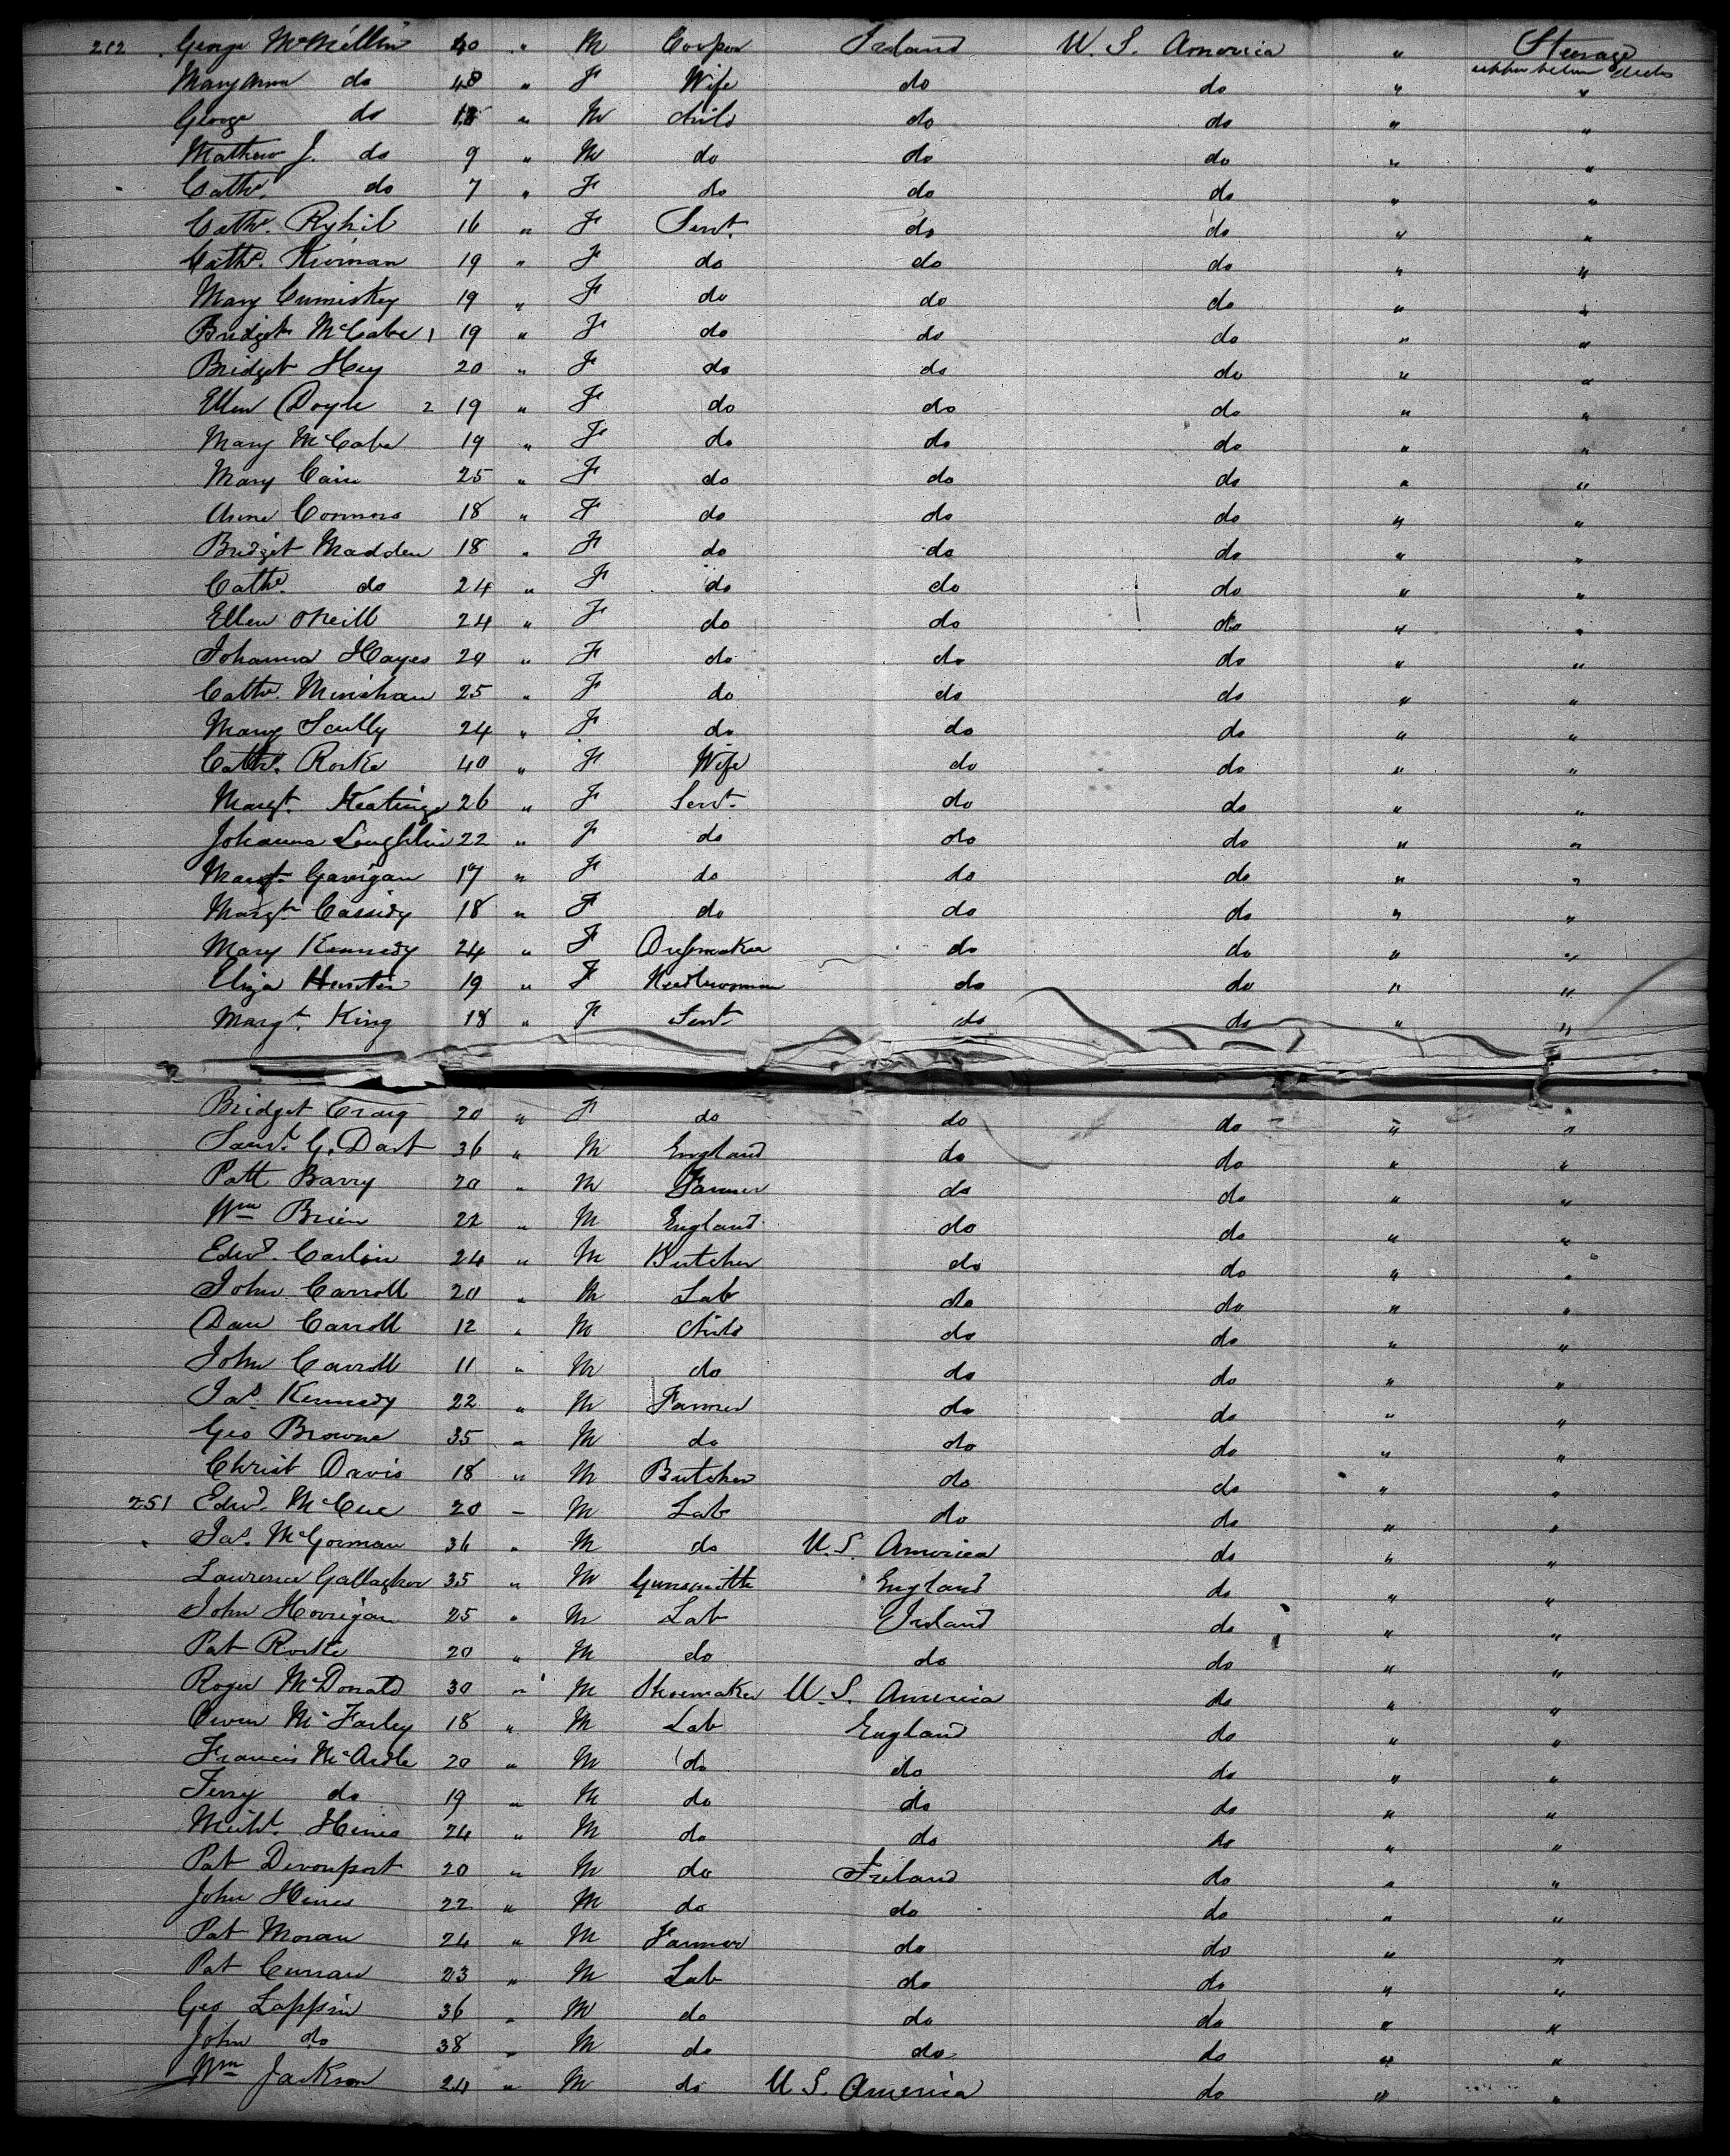 212 George McMillin 40 " M Cooper Ireland U. S. America " Steerage
Mary Ann do 40 " F Wife do do " upper between decks "
George do 18 " M child do do " "
Mathew J. do 9 " M do do do " "
Cathe. do 7 " F do do do " "
Cathe. Ryhil 16 " F Servt. do do " "
Cathe. Kiernan 19 " F do do do " "
Mary Cumiskey 19 " F do do do " "
Bridget McCabe 1 19 " F do do do " "
Bridget Hey 20 " F do do do " "
Ellen Doyle 2 19 " F do do do " "
Mary McCabe 19 " F do do do " "
Mary Cain 25 " F do do do " "
Anne Connors 18 " F do do do " "
Bridget Madden 18 " F do do do " "
Cathe. do 24 " F do do do " "
Ellen ONeill 24 " F do do do " "
Johanna Hayes 20 " F do do do " "
Cathe. Minihan 25 " F do do do " "
Mary Scully 24 " F do do do " "
Cathe. Rorke 40 " F Wife do do " "
Margt. Keatinge 26 " F Servt. do do " "
Johanna Loughlin 22 " F do do do " "
Margt. Garrigan 17 " F do do do " "
Margt. Cassidy 18 " F do do do " "
Mary Kennedy 24 " F Dressmaker do do " "
Eliza Hunter 19 " F Needlewoman do do " "
Margt. King 18 " F Servt. do do " "
Bridget Craig 20 " F do do do " "
Saml. G. Dart 36 " M England do do " "
Patt Barry 20 " M Farmer do do " "
Wm Brien 22 " M England do do " "
Edwd. Carlin 24 " M Butcher do do " "
John Carroll 20 " M Lab do do " "
Dan Carroll 12 " M child do do " "
John Carroll 11 " M do do do " "
Jas. Kennedy 22 " M Farmer do do " "
Geo Browne 35 " M do do do " "
Christ Davis 18 " M Butcher do do " "
251 Edwd. McCue 20 " M Lab do do " "
Jas. McGorman 36 " M do U. S. America do " "
Lawrence Gallagher 35 " M Gunsmith England do " "
John Horrigan 25 " M Lab Ireland do " "
Pat Rorke 20 " M do do do " "
Roger McDonald 30 " M Shoemaker U. S. America do " "
Owen McFarley 18 " M Lab England do " "
Francis McArdle 20 " M do do do " "
Terry do 19 " M do do do " "
Michl. Hines 24 " M do do do " "
Pat Devonport 20 " M do Ireland do " "
John Hines 22 " M do do do " "
Pat Moran 24 " M Farmer do do " "
Pat Curran 23 " M Lab do do " "
Geo Lappin 36 " M do do do " "
John do 38 " M do do do " "
Wm Jackson 24 " M do U S. America do " "